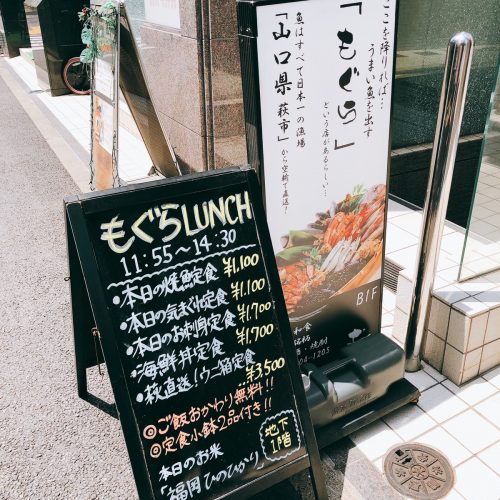 ここを降りれば…
うまい魚を出す
「もぐら」
という店があるらしい…
魚はすべて日本一の漁場
「山口県萩市」から空輸で直送！
B1F
和食
焼酎
もぐらLUNCH
11:55～14:30
・本日の焼魚定食 ¥1,100
・本日の気まぐれ定食 ¥1,100
・本日のお刺身定食 ¥1,700
・海鮮丼定食 ¥1,700
・萩直送！ウニ箱定食 ¥3,500
◎ご飯おかわり無料！！
◎定食小鉢2品付き！！
本日のお米
「福岡ひのひかり」
地下
1階